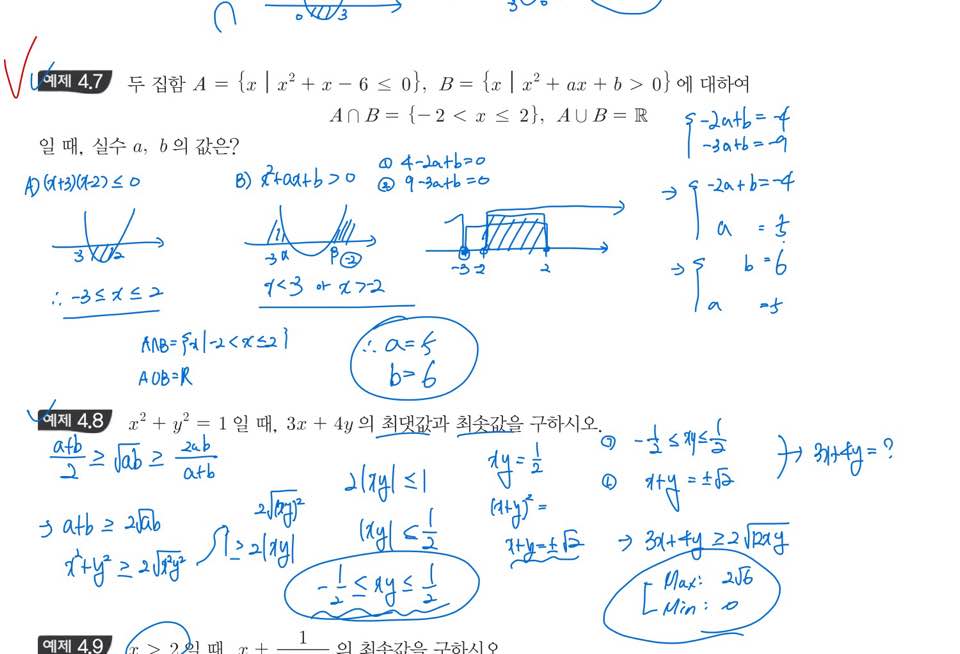 0 3 3 0
예제 4.7 두 집합 A = {x | x² + x − 6 ≤ 0}, B = {x | x² + ax + b > 0}에 대하여
A∩B = {−2 < x ≤ 2}, A∪B = ℝ
일 때, 실수 a, b의 값은?
{ -2a+b=-4
-3a+b=-9
A) (x+3)(x-2) ≤ 0
B) x²+ax+b > 0
① 4-2a+b=0
② 9-3a+b=0
→ { -2a+b=-4
a = 5
→ { b = 6
a = 5
3 2
-3 α β -2
-3 -2 2
∴ -3 ≤ x ≤ 2
x<3 or x>-2
A∩B={x|-2<x≤2}
A∪B=ℝ
∴ a=5
b=6
예제 4.8 x² + y² = 1일 때, 3x + 4y의 최댓값과 최솟값을 구하시오.
a+b/2 ≥ √ab ≥ 2ab/a+b
→ a+b ≥ 2√ab
x²+y² ≥ 2√x²y²
2√(xy)²
≥ 2|xy|
2|xy| ≤ 1
|xy| ≤ 1/2
-1/2 ≤ xy ≤ 1/2
xy = 1/2
(x+y)² =
x+y = ±√2
-1/2 ≤ xy ≤ 1/2
x+y = ±√2
→ 3x+4y = ?
→ 3x+4y ≥ 2√12xy
Max: 2√6
Min: 0
예제 4.9 x > 2일 때, x + 1 의 최솟값을 구하시오